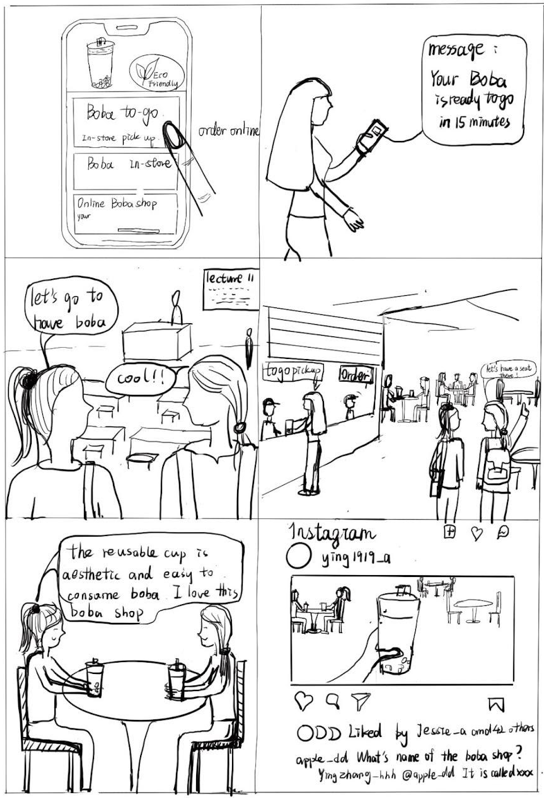 Eco
Friendly
Boba to-go
In-store pick up
order online
Boba In-store
Online Boba shop
your
message :
Your Boba
is ready to go
in 15 minutes
let's go to
have boba
cool!!
lecture 11
to go pick up
Order
let's have a seat
there !
the reusable cup is
aesthetic and easy to
consame boba I love this
boba shop
Instagram
ying1919_a
Liked by Jessie_a and 42 others
apple_dd What's name of the boba shop?
Yingzhang_hhh @apple_dd It is called xxxx